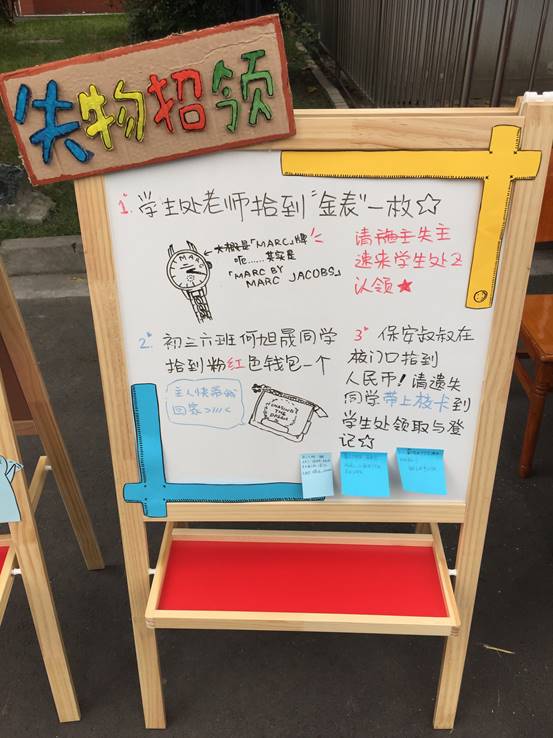 失物招领
1. 学生处老师拾到“金表”一枚☆
←大概是「MARC」牌
呢……其实是
「MARC BY
MARC JACOBS」
MARC
请失主
速来学生处
认领★
2. 初三六班何旭晟同学
拾到粉红色钱包一个
主人快带我
回家>///<
3. 保安叔叔在
校门口拾到
人民币！请遗失
同学带上校卡到
学生处领取与登
记☆